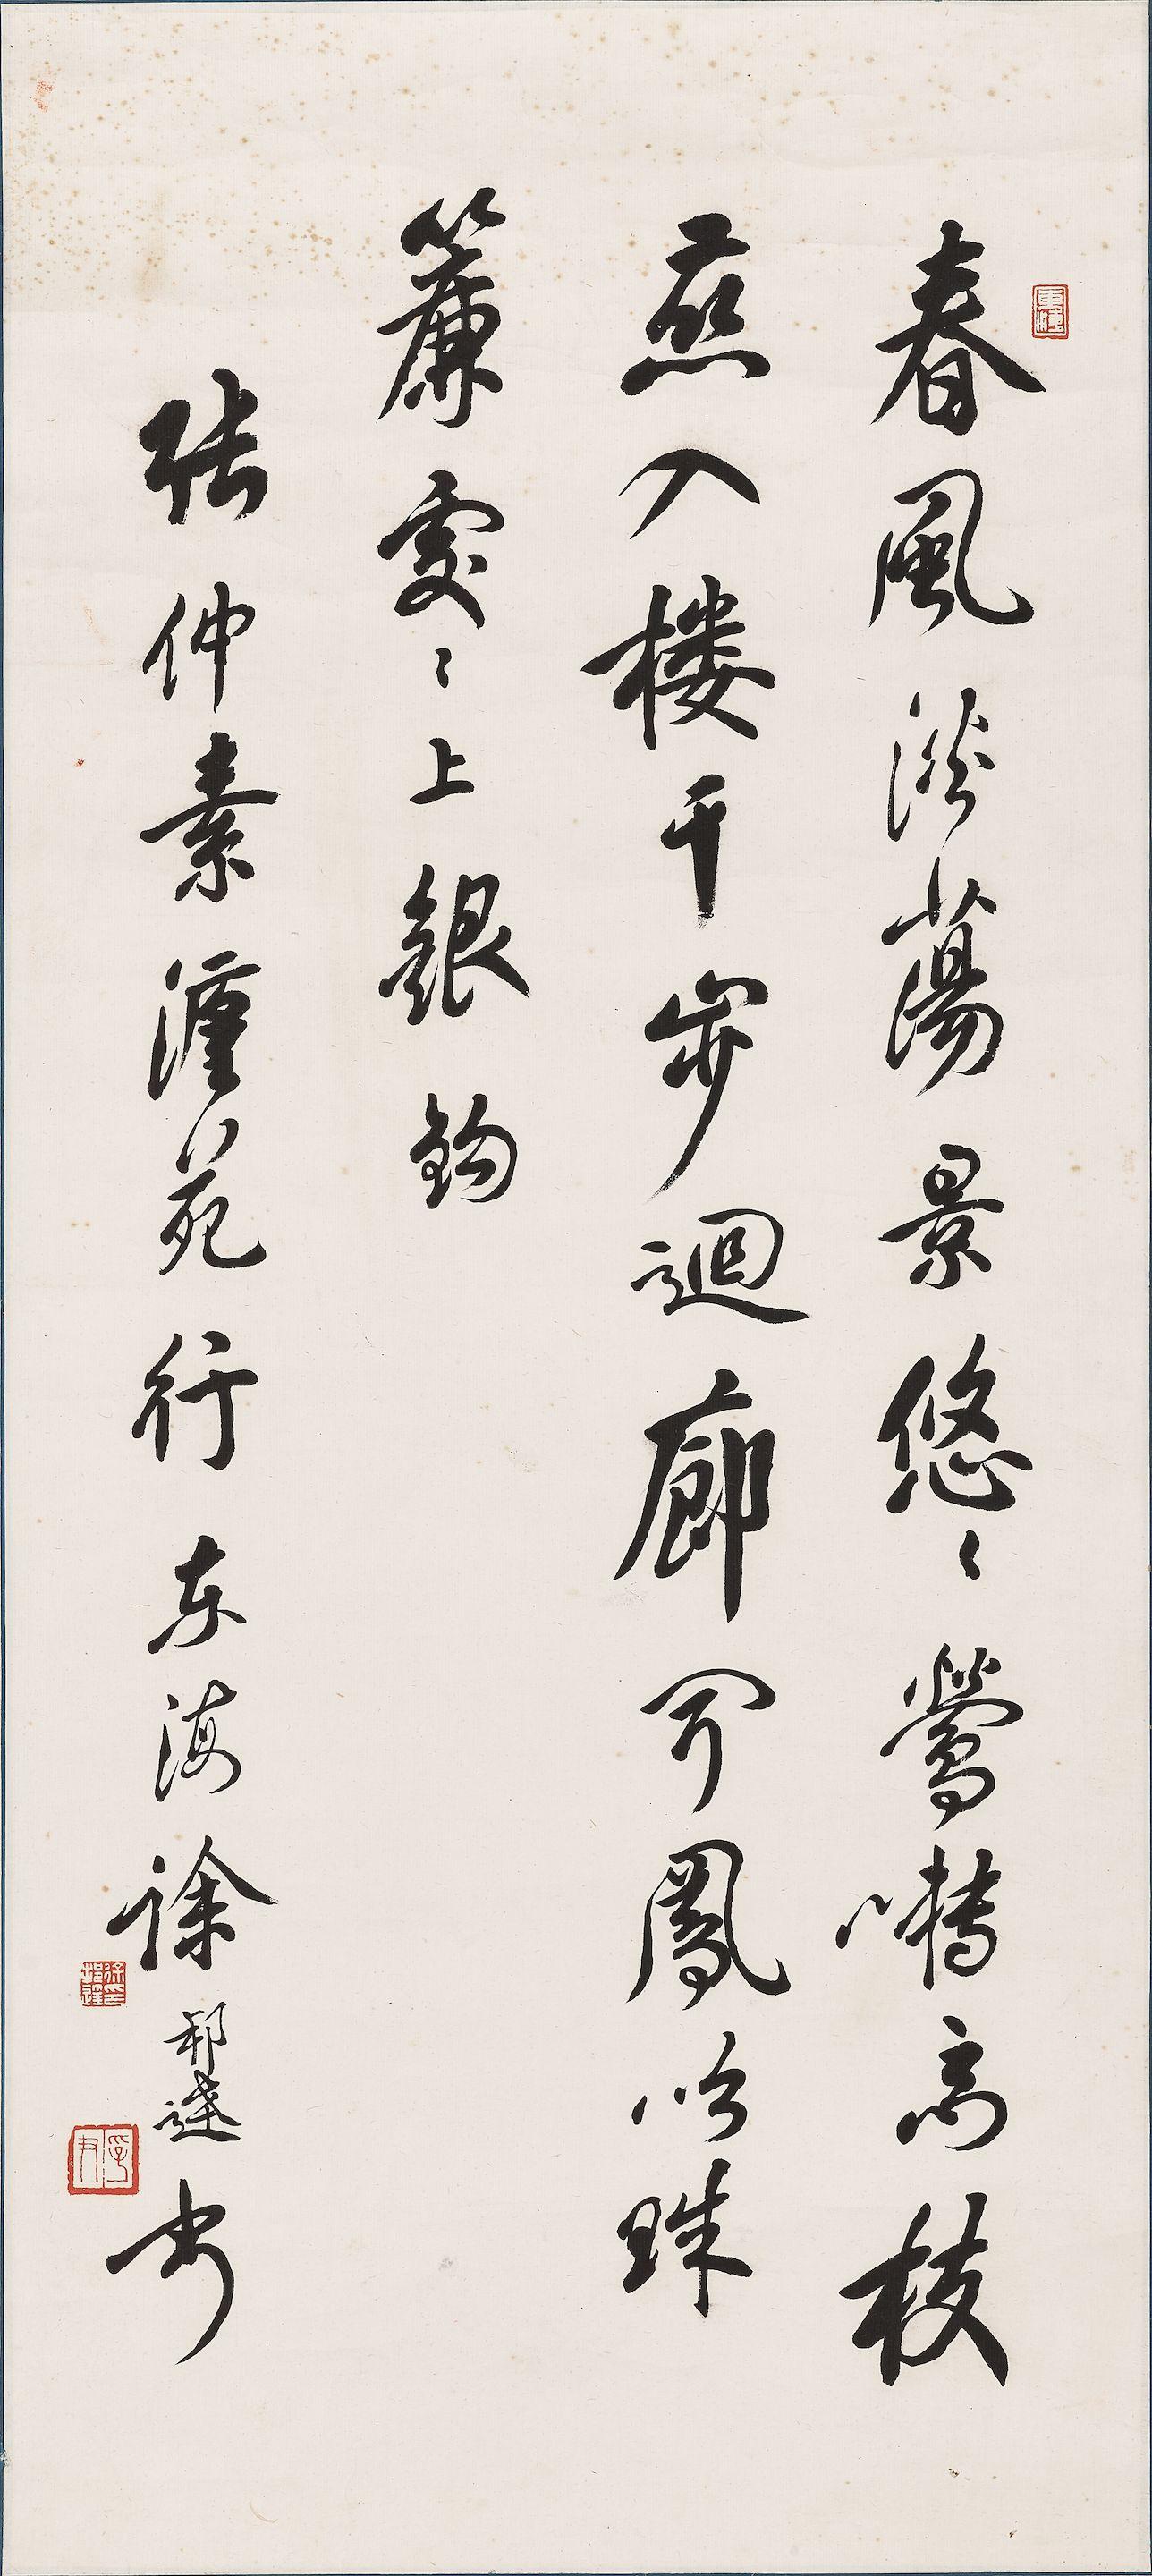 春風淡蕩景悠々鶯囀高枝
燕入樓千步迴廊聞鳳吹珠
簾處々上銀鈎
張仲素漢苑行東海徐邦達書